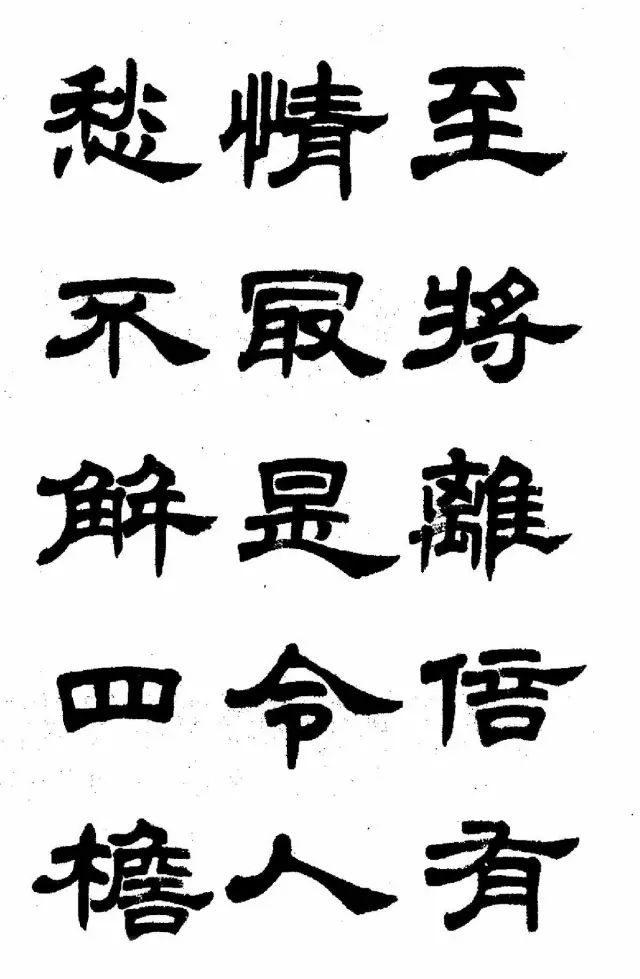 至將離倍有
情冣是令人
愁不解四檐